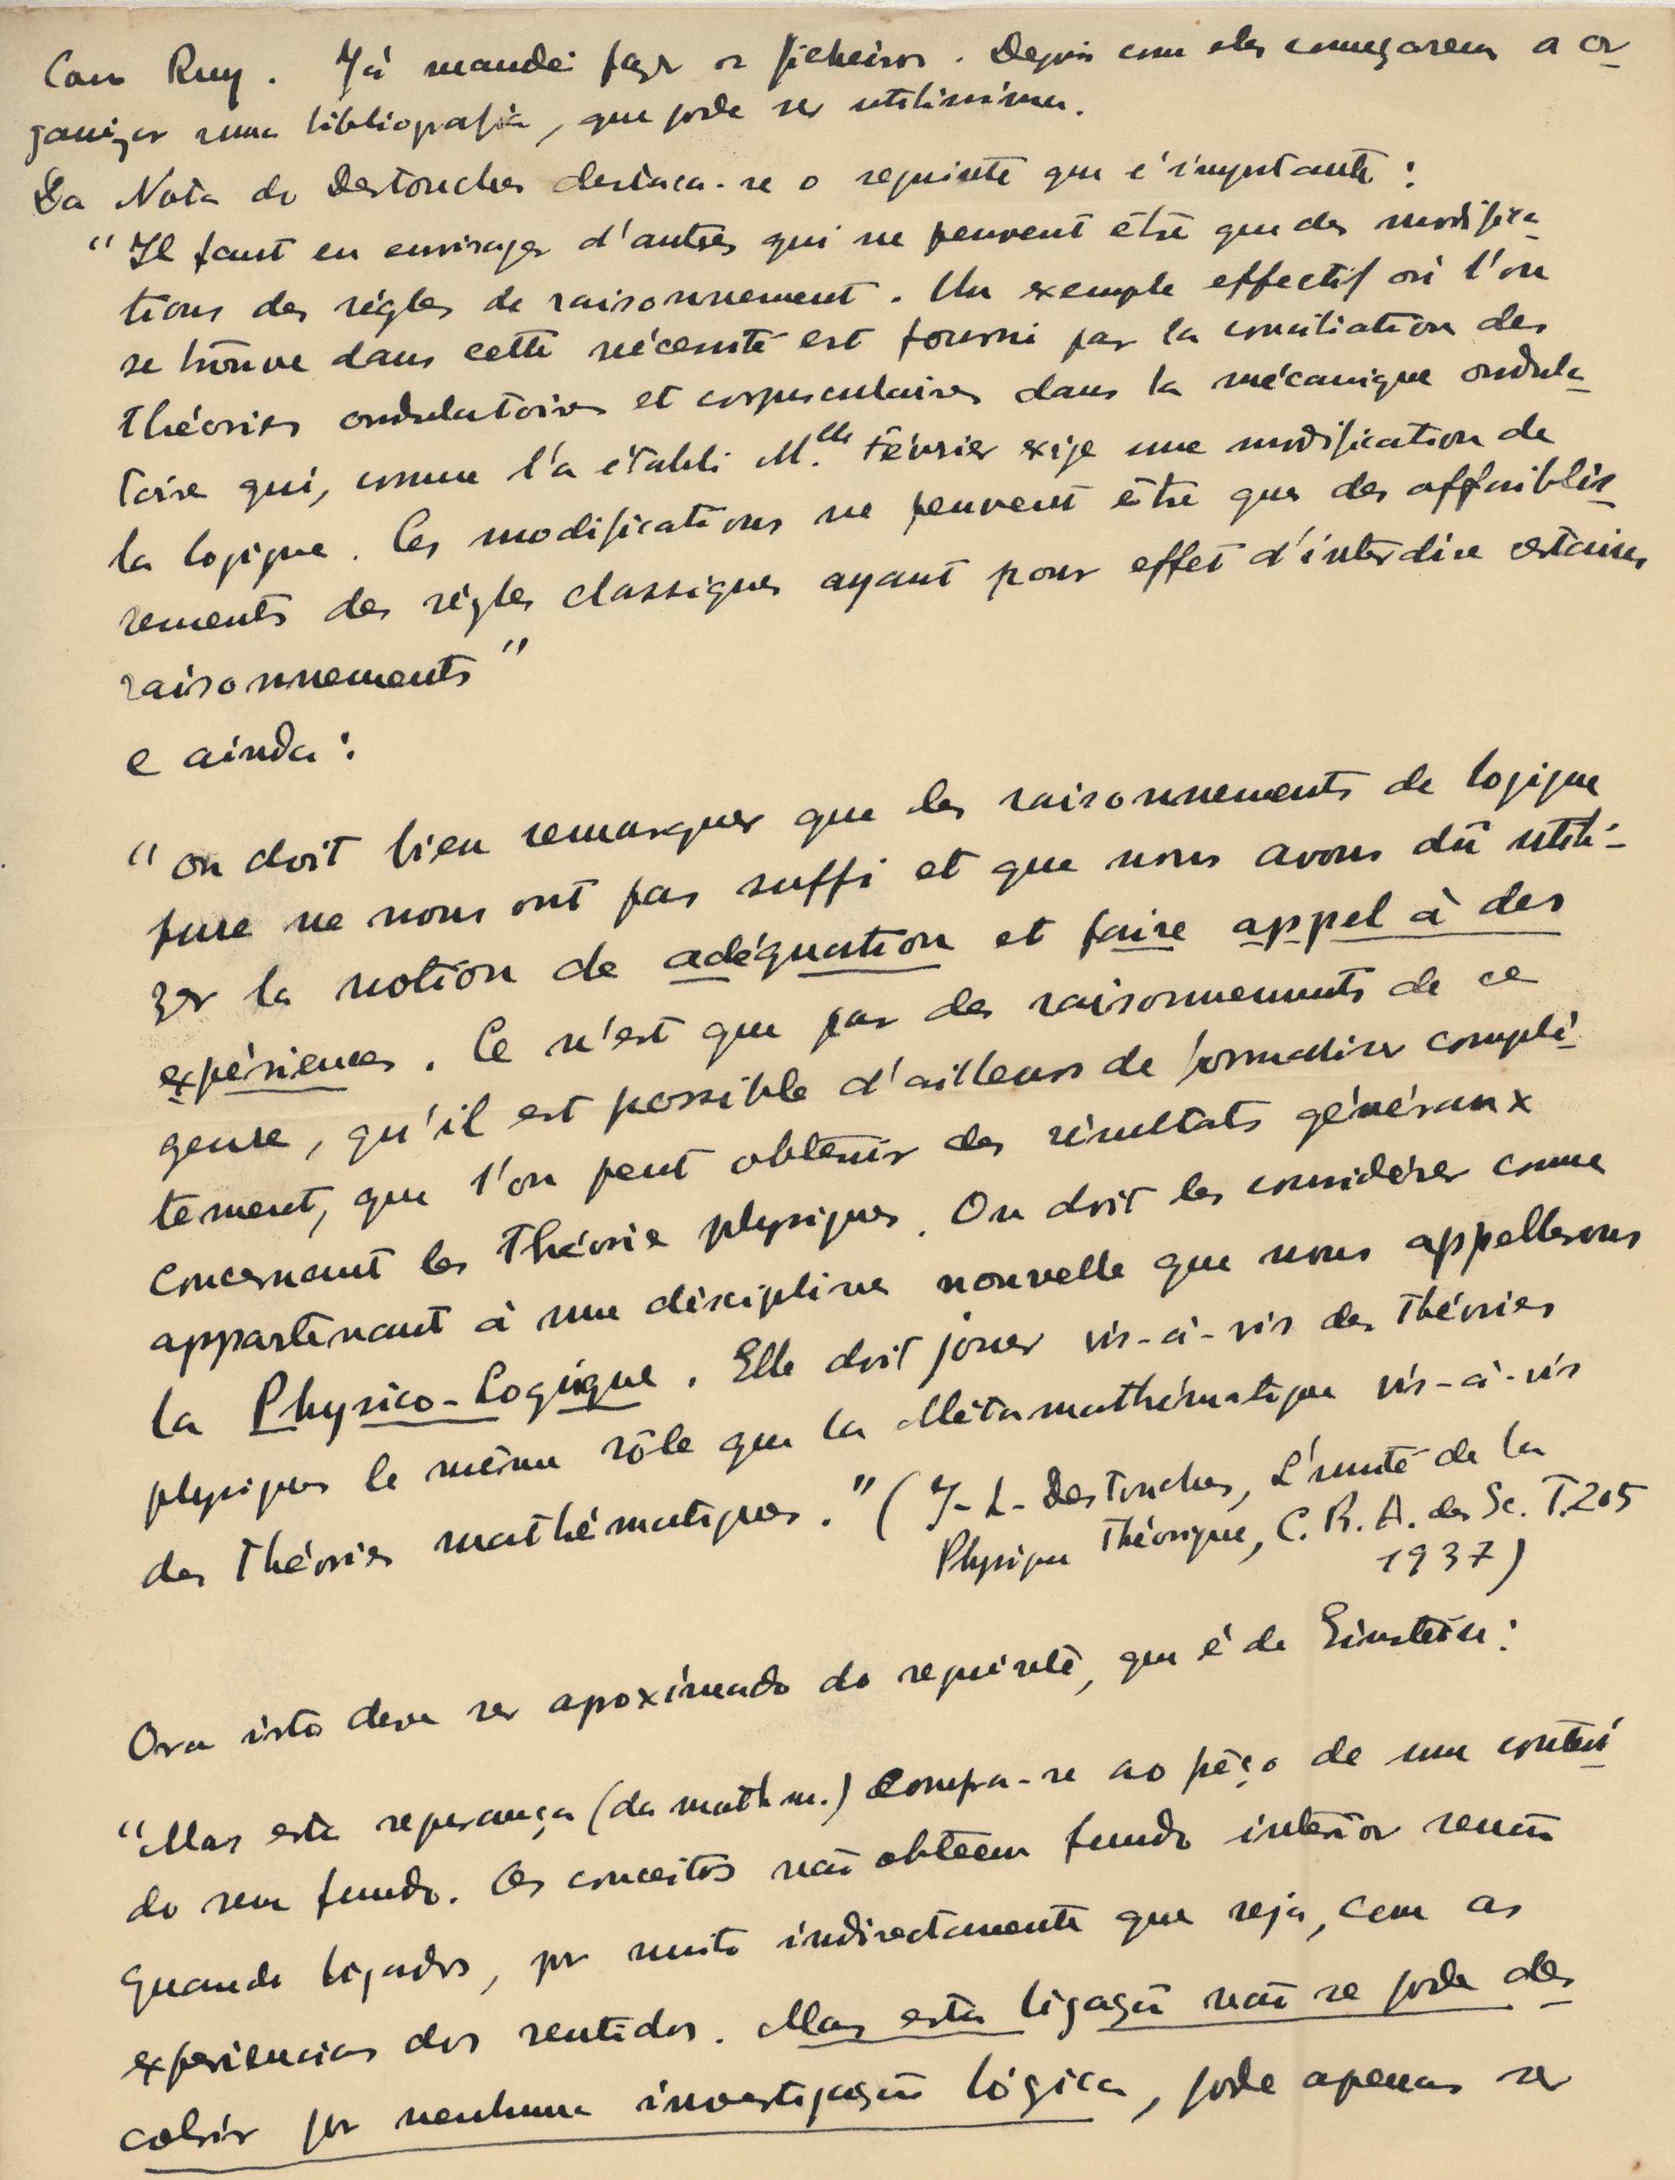 Caro Ruy. Já mandei fazer os ficheiros. Depois com eles começarem a or-
ganizar uma bibliografia, que pode ser utilíssima.
Da Nota do Destouches destaca-se o seguinte que é importante:
"Il faut en envisager d'autres qui ne peuvent être que des modifica-
tions des règles de raisonnement. Un exemple effectif où l'on
se trouve dans cette nécessité est fourni par la conciliation des
théories ondulatoires et corpusculaires dans la mécanique ondula-
toire qui, comme l'a établi M.elle Février exige une modification de
la logique. Ces modifications ne peuvent être que des affaiblis-
sements des règles classiques ayant pour effet d'interdire certains
raisonnements"
e ainda:
"on doit bien remarquer que les raisonnements de logique
pure ne nous ont pas suffi et que nous avons dû utili-
zer la notion de adéquation et faire appel à des
expériences. Ce n'est que par des raisonnements de ce
genre, qu'il est possible d'ailleurs de formaliser complè-
tement, que l'on peut obtenir des résultats généraux
concernant les théorie physiques. On doit les considérer comme
appartenant à une discipline nouvelle que nous appellerons
la Physico-Logique. Elle doit jouer vis-à-vis des théories
physiques le même rôle que la Métamathématique vis-à-vis
des théories mathématiques." (J-L-Destouches, L'unité de la
Physique Théorique, C. R. A. des Sc. T.205
1937)
Ora isto deve ser apoximado do seguinte, que é de Einstein:
"Mas esta segurança (da mathm.) compra-se ao pêço de um conteú-
do sem fundo. Os conceitos não obteem fundo interior senão
quando ligados, por muito indirectamente que seja, com as
experiencias dos sentidos. Mas esta ligação não se pode des-
cobrir por nenhuma investigação lógica, pode apenas ser